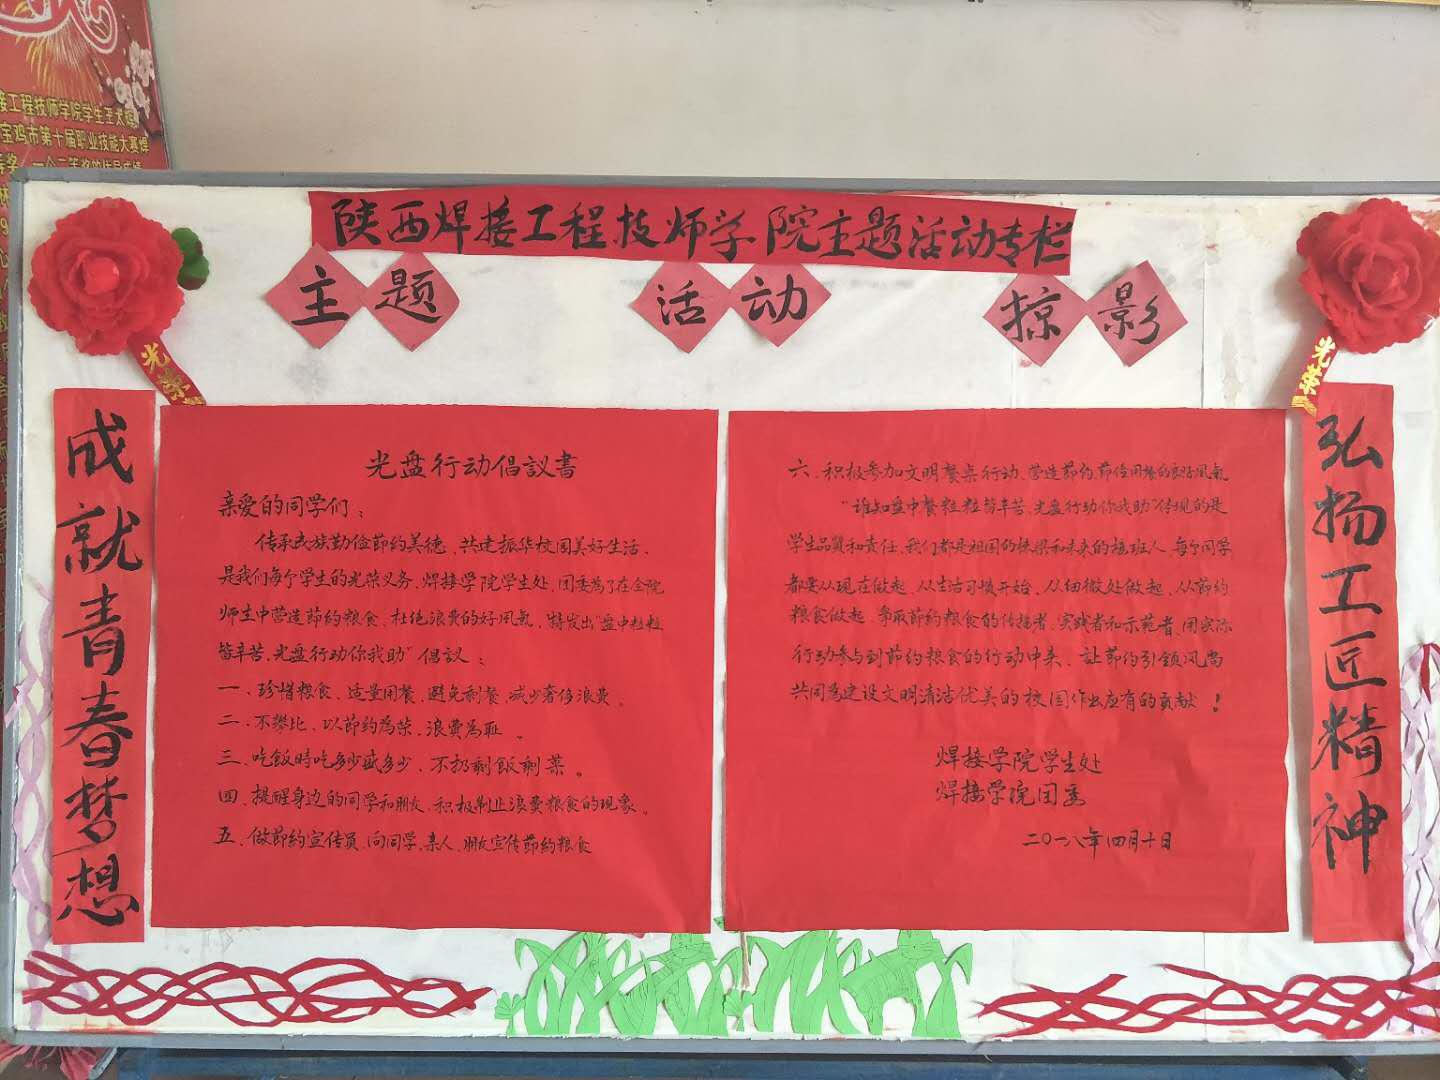 接工程技师学院学生王太辉
宝鸡市第十届职业技能大赛焊
陕西焊接工程技师学院主题活动专栏
主题 活动 掠影
光荣
光荣
成就青春梦想
光盘行动倡议書
亲爱的同学们：
传承民族勤俭節约美德、共建振华校园美好生活、
是我们每个学生的光荣义务、焊接学院学生处、团委為了在全院
师生中营造節约粮食、杜绝浪费的好风氣、特发出"盘中粒粒
皆辛苦、光盘行动你我助"倡议：
一、珍惜粮食、适量用餐、避免剩餐、减少奢侈浪费。
二、不攀比、以節约為荣、浪費為耻。
三、吃飯時吃多少盛多少、不扔剩飯剩菜。
四、提醒身边的同学和朋友、积极制止浪费粮食的现象。
五、做節约宣传员、向同学、亲人、朋友宣传節约粮食
六、积极参加文明餐桌行动、营造節约、節俭用餐的良好风氣
"谁知盘中餐粒粒皆辛苦、光盘行动你我助"传现的是
学生品質和責任、我们都是祖国的栋梁和未来的接班人、每个同学
都要从现在做起、从生活习惯开始、从细微处做起、从節约
粮食做起、争取節约粮食的传播者、实践者和示范者、用实际
行动参与到節约粮食的行动中来、让節约引领风尚
共同為建设文明清洁优美的校园作出应有的贡献！
焊接学院学生处
焊接学院团委
二〇一八年四月十日
弘扬工匠精神